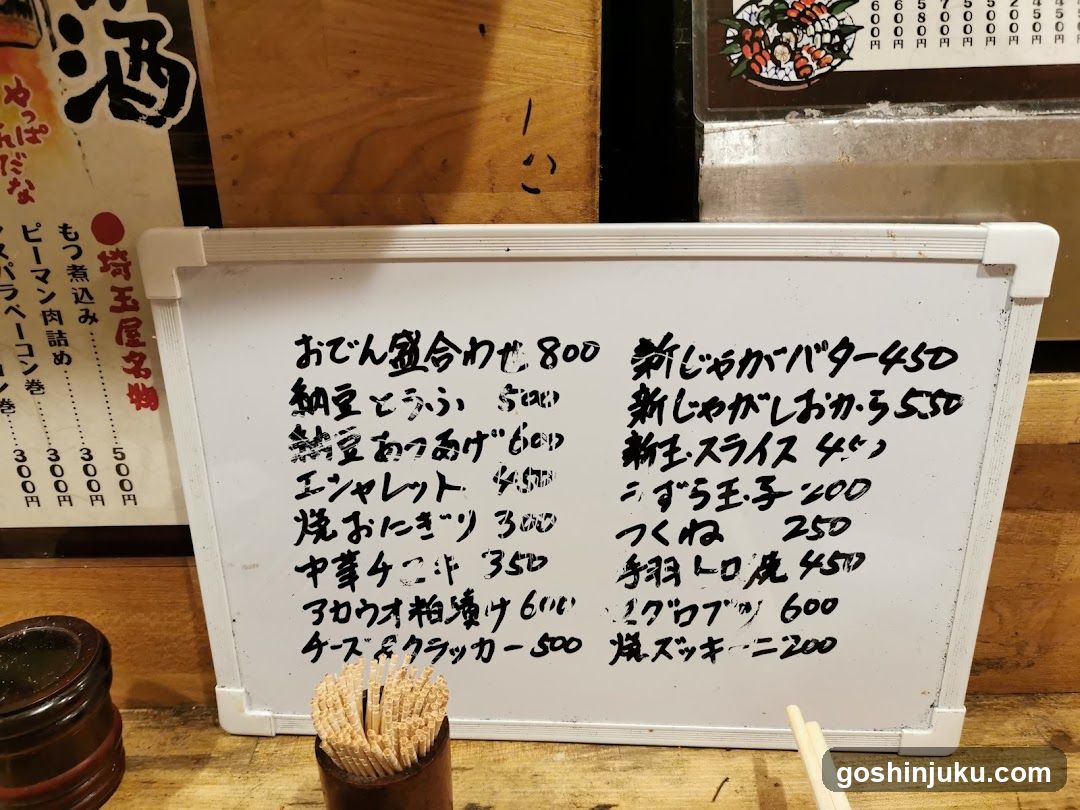 酒
やっぱ
んだな
●埼玉屋名物
もつ煮込み 500円
ピーマン肉詰め 300円
スパラベーコン巻 300円
300円
おでん盛合わせ 800
納豆とうふ 500
納豆あつあげ 600
エシャレット 450
焼おにぎり 300
中華チヂミ 350
アカウオ粕漬け 600
チーズ&クラッカー 500
新じゃがバター 450
新じゃがしおから 550
新玉スライス 450
うずら玉子 200
つくね 250
手羽トロ焼 450
マグロブツ 600
焼ズッキーニ 200
goshinjuku.com